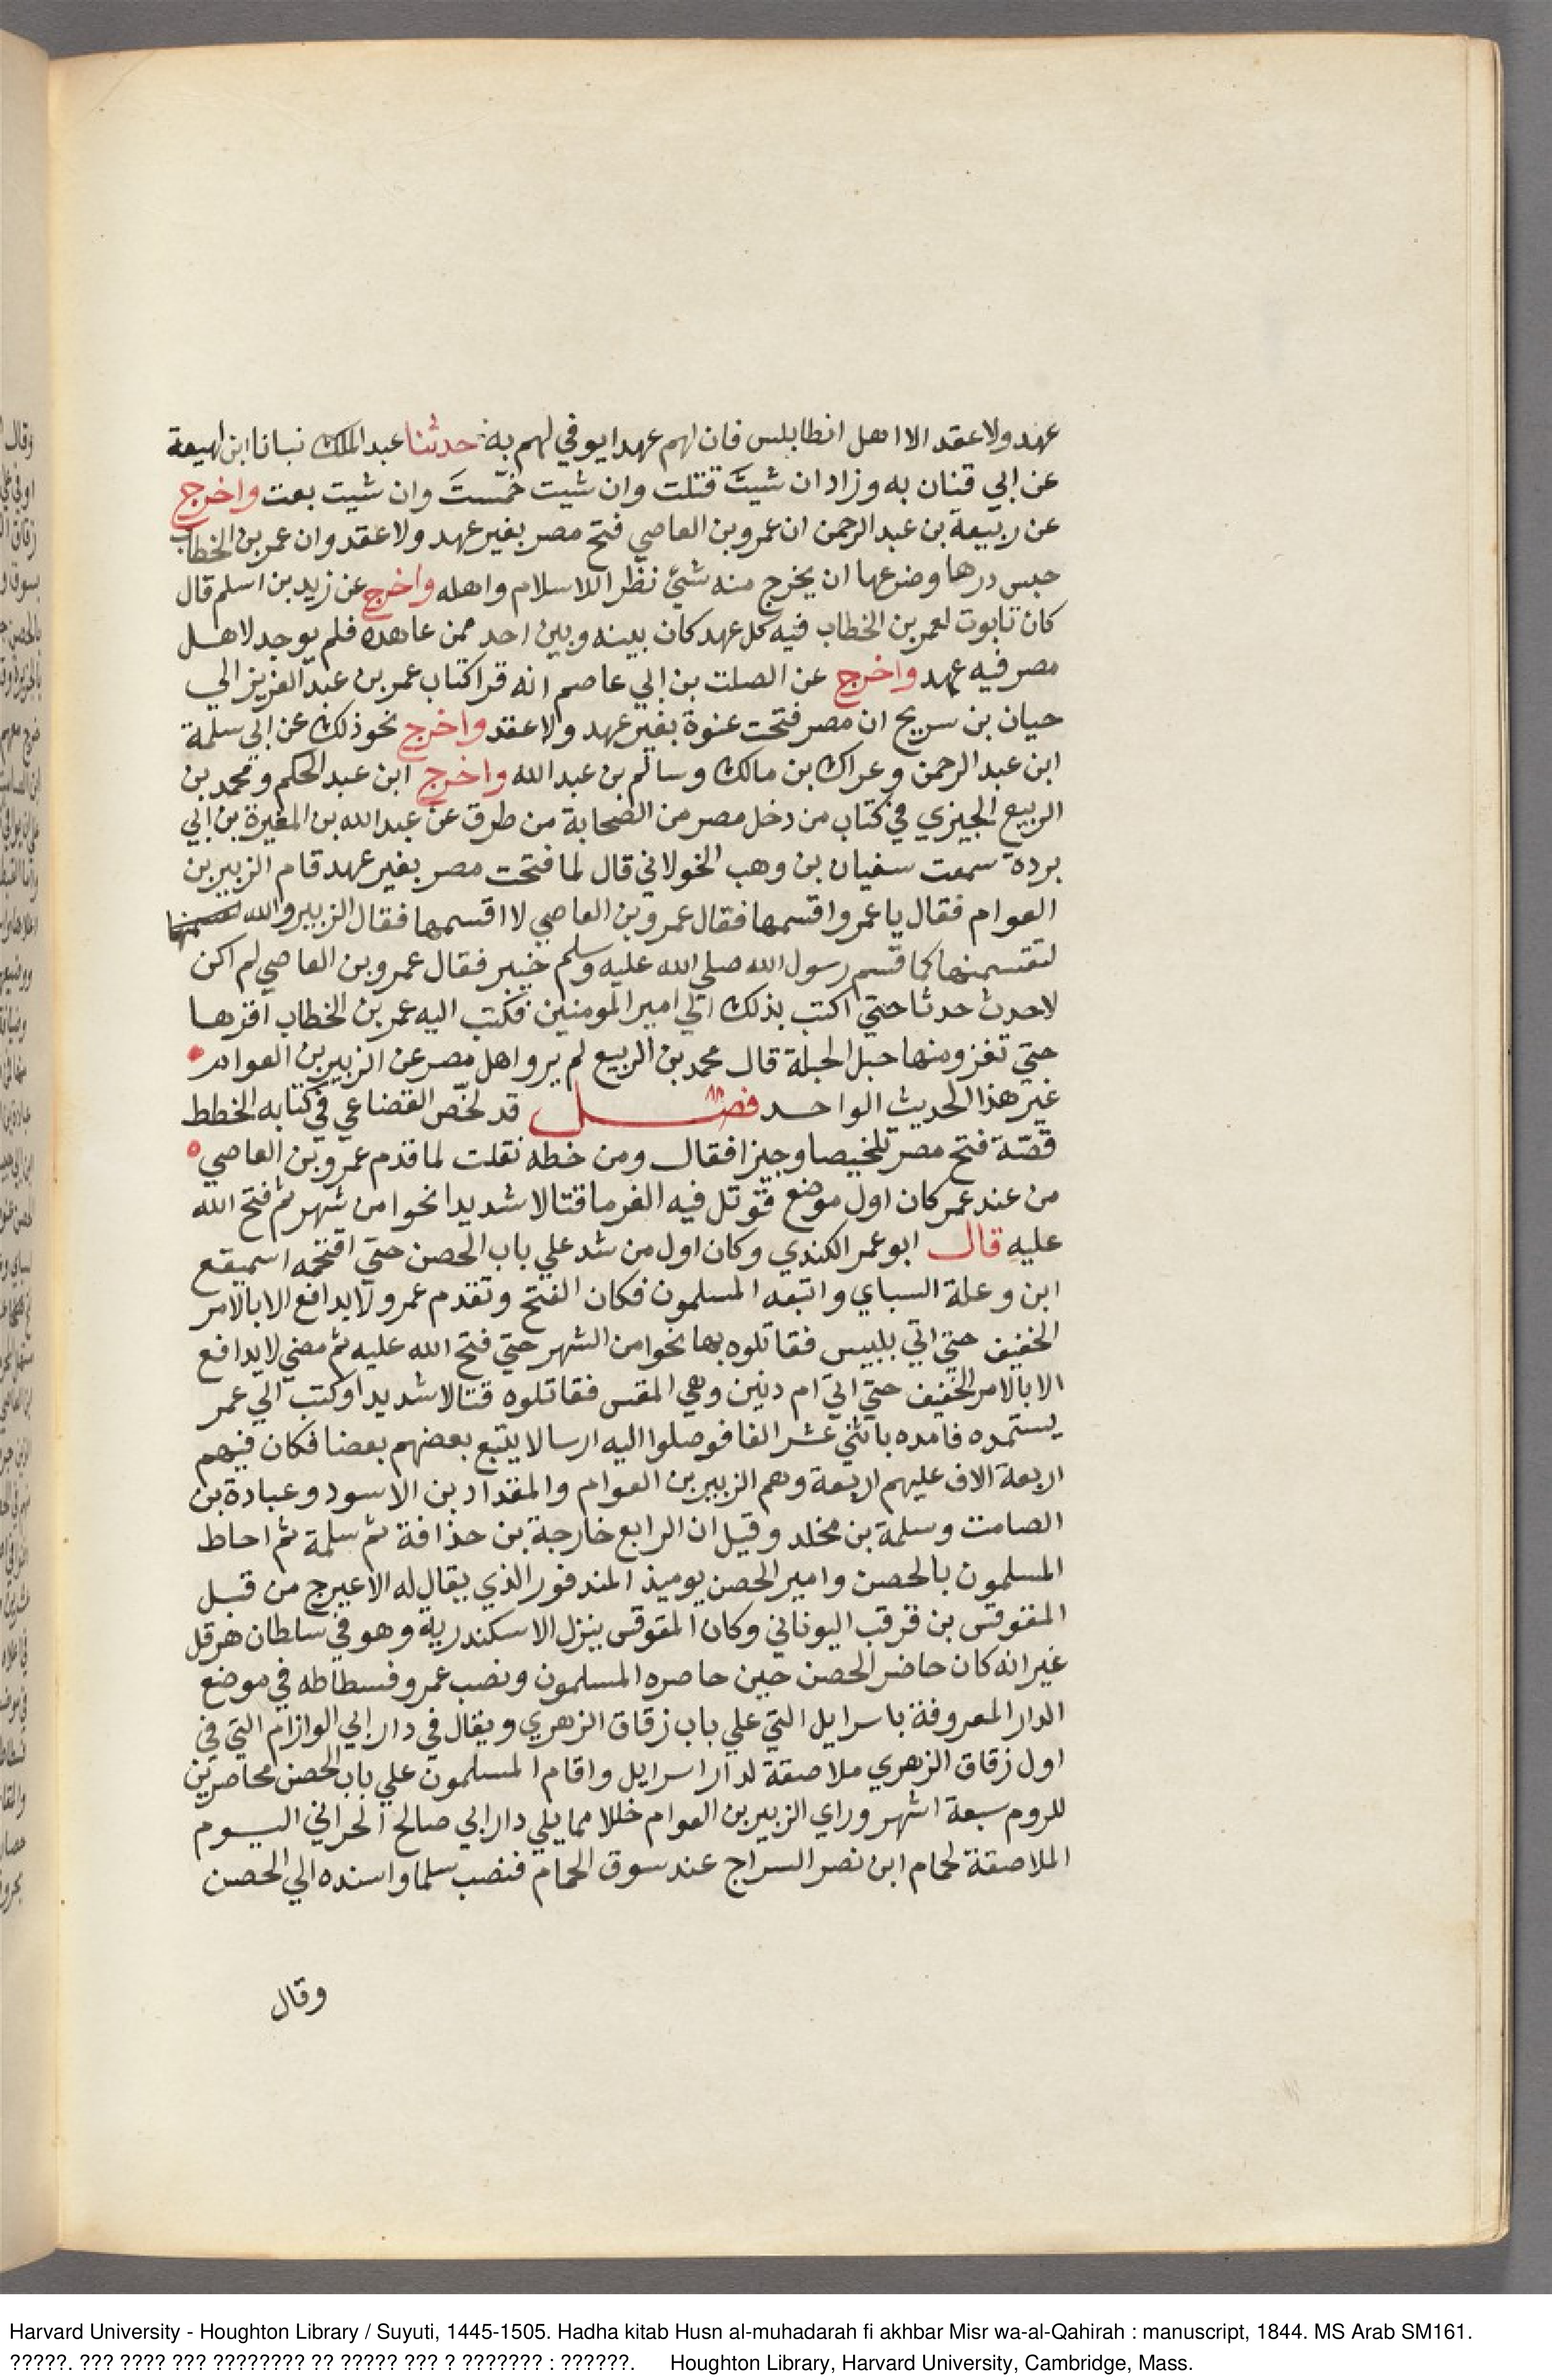 عهد ولا عقد الا اهل انطابلس فان لهم عهدا يوفي لهم به حدثنا عبد الملك نبانا ابن لهيعة
عن ابي قنان به وزاد ان شيتَ قتلت وان شيت خمّستَ وان شيت بعت واخرج
عن ربيعة بن عبد الرحمن ان عمرو بن العاصي فتح مصر بغير عهد ولا عقد وان عمر بن الخطاب
حبس درها وضرعها ان يخرج منه شئ نظر اللاسلام واهله واخرج عن زيد بن اسلم قال
كان تابوت لعمر بن الخطاب فيه كل عهد كان بينه وبين احد ممن عاهده فلم يوجد لاهل
مصر فيه عهد واخرج عن الصلت بن ابي عاصم انه قرا كتاب عمر بن عبد العزيز الي
حيان بن سريج ان مصر فتحت عنوة بغير عهد ولا عقد واخرج نحو ذلك عن ابي سلمة
ابن عبد الرحمن وعراك بن مالك وسالم بن عبد الله واخرج ابن عبد الحكم ومحمد بن
الربيع الجيزي في كتاب من دخل مصر من الصحابة من طرق عن عبد الله بن المغيرة بن ابي
بردة سمعت سفيان بن وهب الخولاني قال لما فتحت مصر بغير عهد قام الزبير بن
العوام فقال يا عمرو اقسمها فقال عمرو بن العاصي لا اقسمها فقال الزبير والله
لتقسمنها كما قسم رسول الله صلي الله عليه وسلم خيبر فقال عمرو بن العاصي لم اكن
لاحدث حدثا حتي اكتب بذلك الي امير المومنين فكتب اليه عمر بن الخطاب اقرها
حتي تغزو منها حبل الحبلة قال محمد بن الربيع لم يرو اهل مصر عن الزبير بن العوام
غير هذا الحديث الواحد فصل قد لخّص القضاعي في كتابه الخطط
قصّة فتح مصر تلخيصا وجيزا فقال ومن خطه نقلت لما قدم عمرو بن العاصي
من عند عمر كان اول موضع قوتل فيه الفرما قتالا شديدا نحوا من شهر ثم فتح الله
عليه قال ابو عمر الكندي وكان اول من شد علي باب الحصن حتي اقتحمه اسميقع
ابن وعلة السباي واتبعه المسلمون فكان الفتح وتقدم عمرو لا يدافع الا بالامر
الخفيف حتي اتي بلبيس فقاتلوه بها نحوا من الشهر حتي فتح الله عليه ثم مضي لا يدافع
الا بالامر الخفيف حتي اتي ام دنين وهي المقس فقاتلوه قتالا شديدا وكتب الي عمر
يستمده فامده باثني عشر الفا فوصلوا اليه ارسالا يتبع بعضهم بعضا فكان فيهم
اربعة الاف عليهم اربعة وهم الزبير بن العوام والمقداد بن الاسود وعبادة بن
الصامت وسلمة بن مخلد وقيل ان الرابع خارجة بن حذافة ثم سلمة ثم احاط
المسلمون بالحصن وامير الحصن يوميذ المندفور الذي يقال له الاعيرج من قبل
المقوقس بن قرقب اليوناني وكان المقوقس ينزل الاسكندرية وهو في سلطان هرقل
غير انه كان حاضر الحصن حين حاصره المسلمون ونصب عمرو فسطاطه في موضع
الدار المعروفة باسرايل التي علي باب زقاق الزهري ويقال في دار ابي الوازام التي في
اول زقاق الزهري ملاصقة لدار اسرايل واقام المسلمون علي باب الحصن محاصرين
للروم سبعة اشهر وراي الزبير بن العوام خللا مما يلي دار ابي صالح الحراني اليوم
الملاصقة لحمام ابن نصر السراج عند سوق الحمام فنصب سلما واسنده الي الحصن
وقال
Harvard University - Houghton Library / Suyuti, 1445-1505. Hadha kitab Husn al-muhadarah fi akhbar Misr wa-al-Qahirah : manuscript, 1844. MS Arab SM161.
?????. ??? ???? ??? ???????? ?? ????? ??? ? ??????? : ??????. Houghton Library, Harvard University, Cambridge, Mass.